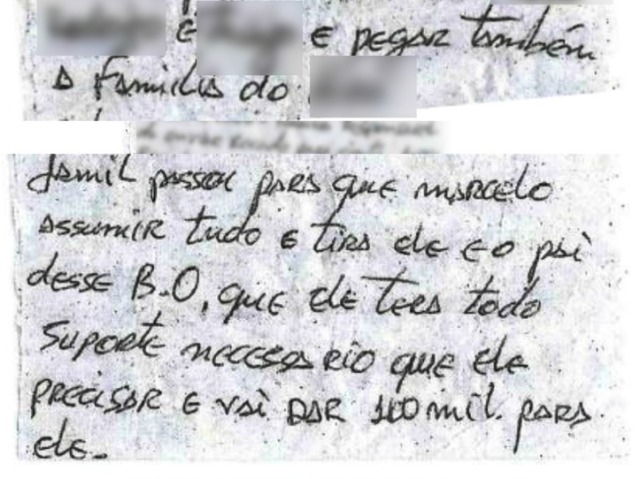 E E pegar também
A Familia do
Jamil passou para que marcelo
Assumir tudo e tira ele e o pai
desse B.O, que ele tera todo
Suporte necessario que ele
precisar e vai dar 100 mil para
ele.